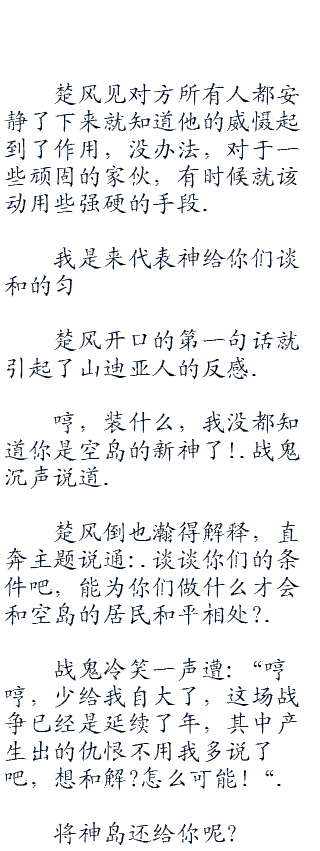 楚风见对方所有人都安
静了下来就知道他的威慑起
到了作用，没办法，对于一
些顽固的家伙，有时候就该
动用些强硬的手段.
我是来代表神给你们谈
和的匀
楚风开口的第一句话就
引起了山迪亚人的反感.
哼，装什么，我没都知
道你是空岛的新神了!.战鬼
沉声说道.
楚风倒也瀚得解释，直
奔主题说通:.谈谈你们的条
件吧，能为你们做什么才会
和空岛的居民和平相处?.
战鬼冷笑一声遭:“哼
哼，少给我自大了，这场战
争已经是延续了年，其中产
生出的仇恨不用我多说了
吧，想和解?怎么可能!“.
将神岛还给你呢?